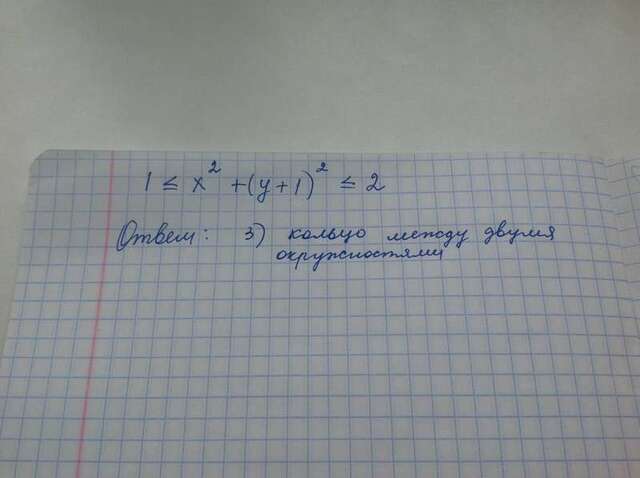 1 ≤ x² + (y + 1)² ≤ 2
Ответ: 3) кольцо между двумя
окружностями